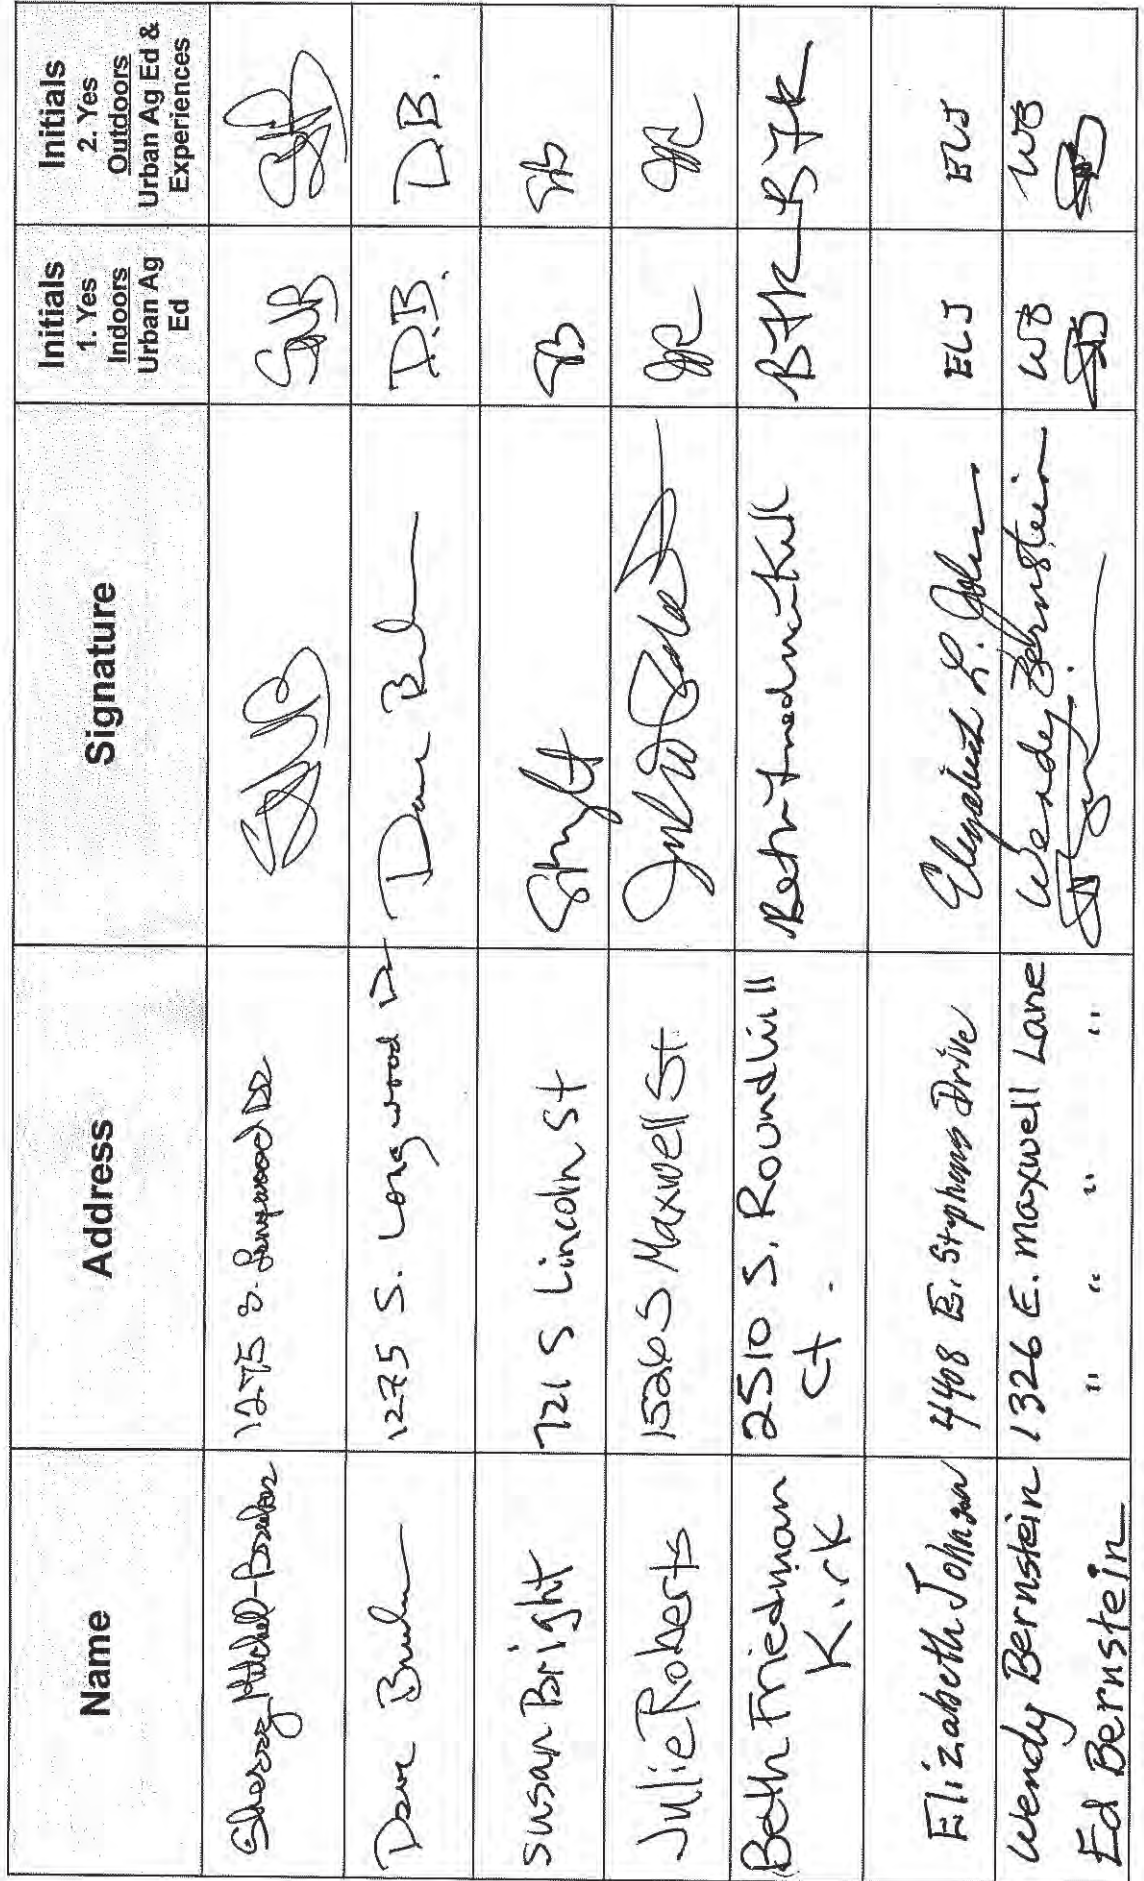 Name Address Signature Initials 1. Yes Indoors Urban Ag Ed Initials 2. Yes Outdoors Urban Ag Ed & Experiences
1275 S. Longwood Dr
Dave 1275 S. Longwood Dr Dave D.B. D.B.
Susan Bright 721 S Lincoln St SB SB
Julie Roberts 1526 S. Maxwell St Julie Roberts JR JR
Beth Friedman Kirk 2510 S. Roundhill Ct. Beth Friedman Kirk BFK BFK
Elizabeth Johnson 4408 E. Stephens Drive Elizabeth L. John ELJ ELJ
Wendy Bernstein 1326 E. Maxwell Lane Wendy Bernstein WB WB
Ed Bernstein " " " "